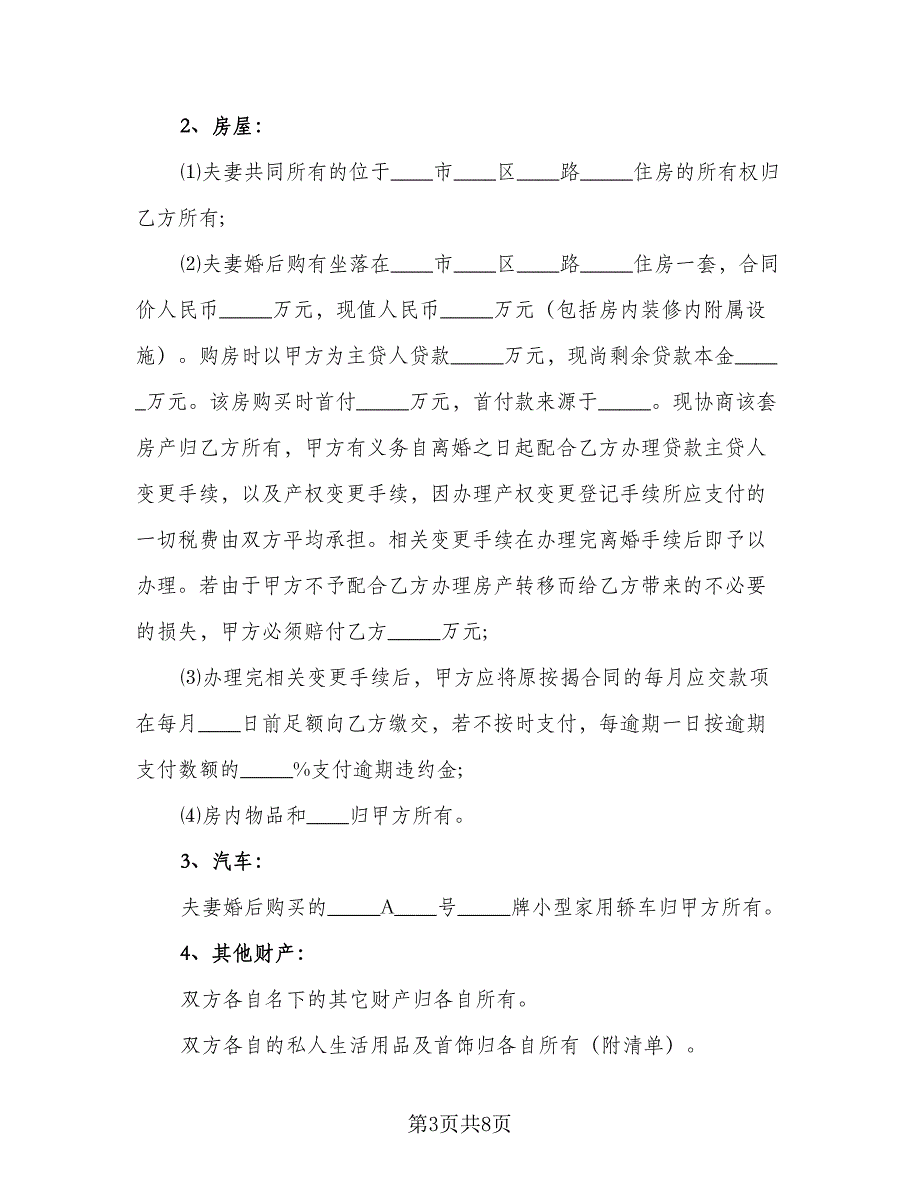 2、房屋：
⑴夫妻共同所有的位于____市____区____路_____住房的所有权归
乙方所有;
⑵夫妻婚后购有坐落在____市____区____路_____住房一套，合同
价人民币_____万元，现值人民币_____万元（包括房内装修内附属设
施）。购房时以甲方为主贷人贷款_____万元，现尚剩余贷款本金____
_万元。该房购买时首付_____万元，首付款来源于_____。现协商该套
房产归乙方所有，甲方有义务自离婚之日起配合乙方办理贷款主贷人
变更手续，以及产权变更手续，因办理产权变更登记手续所应支付的
一切税费由双方平均承担。相关变更手续在办理完离婚手续后即予以
办理。若由于甲方不予配合乙方办理房产转移而给乙方带来的不必要
的损失，甲方必须赔付乙方_____万元;
⑶办理完相关变更手续后，甲方应将原按揭合同的每月应交款项
在每月____日前足额向乙方缴交，若不按时支付，每逾期一日按逾期
支付数额的_____%支付逾期违约金;
⑷房内物品和____归甲方所有。
3、汽车：
夫妻婚后购买的_____A____号_____牌小型家用轿车归甲方所有。
4、其他财产：
双方各自名下的其它财产归各自所有。
双方各自的私人生活用品及首饰归各自所有（附清单）。
第3页共8页